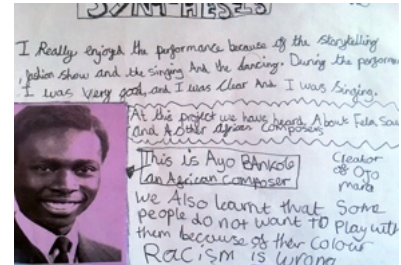 SYNTHESES
I Really enjoyed the performance because of the storytelling
, fashion show and the singing And the dancing. During the performan
I was very good, and I was Clear And I was Singing.
At this project we have heard About Fela Sow
and Other african Composers
This is Ayo BANKOLE
an African Composer
Creator
of OJO
Maria
We Also learnt that Some
people do not want to Play with
them because of their Colour
Racism is wrong